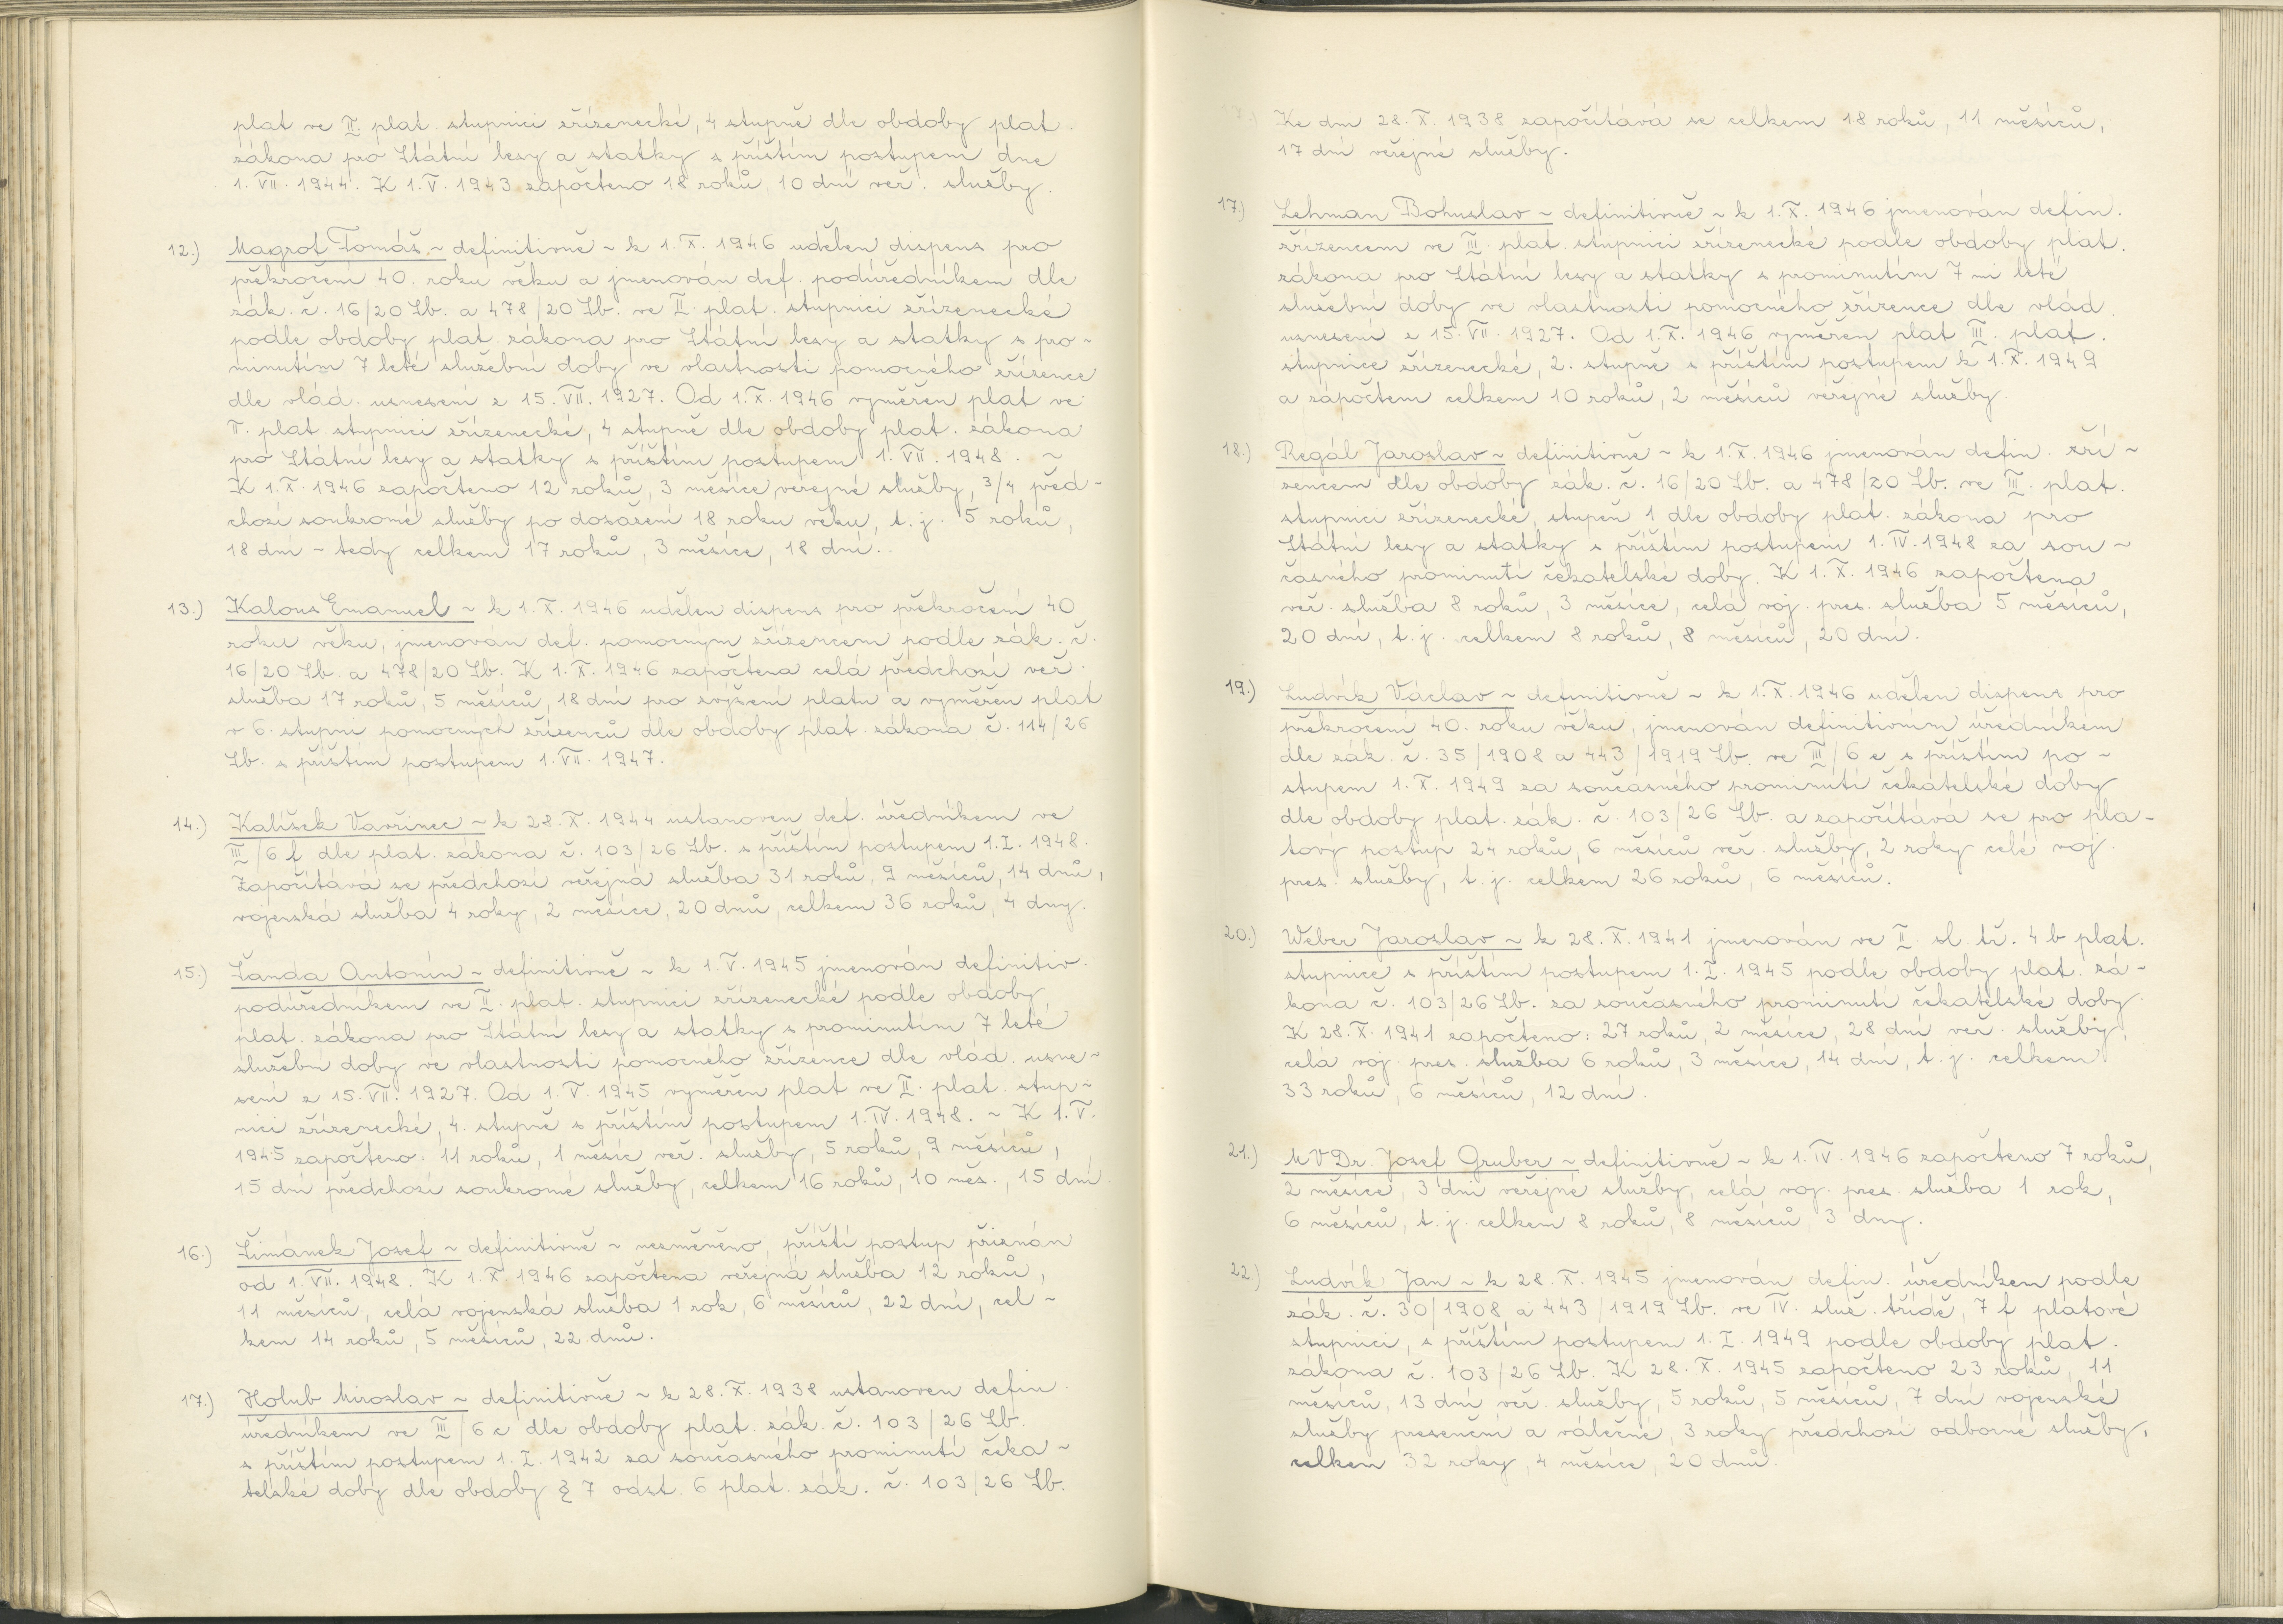 plat ve II. plat. stupnici zřízenecké, 4 stupně dle obdoby plat.
zákona pro Státní lesy a statky s příštím postupem dne
1. VII. 1944. K 1. V. 1943 započteno 18 roků, 10 dní veř. služby.
12.) Magrot Tomáš ~ definitivně ~ k 1. X. 1946 udělen dispens pro
překročení 40. roku věku a jmenován def. podúředníkem dle
zák. č. 16/20 Sb. a 478/20 Sb. ve II. plat. stupnici zřízenecké
podle obdoby plat. zákona pro Státní lesy a statky s pro-
minutím 7 leté služební doby ve vlastnosti pomocného zřízence
dle vlád. usnesení z 15. VII. 1927. Od 1. X. 1946 vyměřen plat ve
II. plat. stupnici zřízenecké, 4 stupně dle obdoby plat. zákona
pro Státní lesy a statky s příštím postupem 1. VII. 1948. ~
K 1. X. 1946 započteno 12 roků, 3 měsíce veřejné služby, 3/4 před-
chozí soukromé služby po dosažení 18 roku věku, t. j. 5 roků,
18 dní ~ tedy celkem 17 roků, 3 měsíce, 18 dní.
13.) Kalous Emanuel ~ k 1. X. 1946 udělen dispens pro překročení 40
roku věku, jmenován def. pomocným zřízencem podle zák. č.
16/20 Sb. a 478/20 Sb. K 1. X. 1946 započtena celá předchozí veř.
služba 17 roků, 5 měsíců, 18 dní pro zvýšení platu a vyměřen plat
v 6. stupni pomocných zřízenců dle obdoby plat. zákona č. 114/26
Sb. s příštím postupem 1. VII. 1947.
14.) Kalíšek Vavřinec ~ k 28. X. 1944 ustanoven def. úředníkem ve
III/6 f dle plat. zákona č. 103/26 Sb. s příštím postupem 1. I. 1948.
Započítává se předchozí veřejná služba 31 roků, 9 měsíců, 14 dnů,
vojenská služba 4 roky, 2 měsíce, 20 dnů, celkem 36 roků, 4 dny.
15.) Žanda Antonín ~ definitivně ~ k 1. V. 1945 jmenován definitiv.
podúředníkem ve II. plat. stupnici zřízenecké podle obdoby
plat. zákona pro Státní lesy a statky s prominutím 7 leté
služební doby ve vlastnosti pomocného zřízence dle vlád. usne~
sení z 15. VII. 1927. Od 1. V. 1945 vyměřen plat ve II. plat. stup~
nici zřízenecké, 4. stupně s příštím postupem 1. IV. 1948. ~ K 1. V.
1945 započteno: 11 roků, 1 měsíc veř. služby, 5 roků, 9 měsíců,
15 dní předchozí soukromé služby, celkem 16 roků, 10 měs., 15 dní.
16.) Šimánek Josef ~ definitivně ~ nezměněno, příští postup přiznán
od 1. VII. 1948. K 1. X. 1946 započtena veřejná služba 12 roků,
11 měsíců, celá vojenská služba 1 rok, 6 měsíců, 22 dní, cel ~
kem 14 roků, 5 měsíců, 22 dnů.
17.) Holub Miroslav ~ definitivně ~ k 28. X. 1938 ustanoven defin.
úředníkem ve III/6 c dle obdoby plat. zák. č. 103/26 Sb.
s příštím postupem 1. I. 1942 za současného prominutí čeka ~
telské doby dle obdoby § 7 odst. 6 plat. zák. č. 103/26 Sb.
Ke dni 28. X. 1938 započítává se celkem 18 roků, 11 měsíců,
17 dní veřejné služby.
17.) Lehman Bohuslav ~ definitivně ~ k 1. X. 1946 jmenován defin.
zřízencem ve III. plat. stupnici zřízenecké podle obdoby plat.
zákona pro Státní lesy a statky s prominutím 7 mi leté
služební doby ve vlastnosti pomocného zřízence dle vlád.
usnesení z 15. VII. 1927. Od 1. X. 1946 vyměřen plat III. plat.
stupnice zřízenecké, 2. stupně s příštím postupem k 1. X. 1949
a zápočtem celkem 10 roků, 2 měsíců veřejné služby.
18.) Regál Jaroslav ~ definitivně ~ k 1. X. 1946 jmenován defin. zří ~
zencem dle obdoby zák. č. 16/20 Sb. a 478/20 Sb. ve III. plat.
stupnici zřízenecké, stupeň 1 dle obdoby plat. zákona pro
Státní lesy a statky s příštím postupem 1. IV. 1948 za sou ~
časného prominutí čekatelské doby. K 1. X. 1946 započtena
veř. služba 8 roků, 3 měsíce, celá voj. pres. služba 5 měsíců,
20 dní, t. j. celkem 8 roků, 8 měsíců, 20 dní.
19.) Ludvík Václav ~ definitivně ~ k 1. X. 1946 udělen dispens pro
překročení 40. roku věku, jmenován definitivním úředníkem
dle zák. č. 35/1908 a 443/1919 Sb. ve III/6 e s příštím po ~
stupem 1. X. 1949 za současného prominutí čekatelské doby
dle obdoby plat. zák. č. 103/26 Sb. a započítává se pro pla ~
tový postup 24 roků, 6 měsíců veř. služby, 2 roky celé voj.
pres. služby, t. j. celkem 26 roků, 6 měsíců.
20.) Weber Jaroslav ~ k 28. X. 1941 jmenován ve II. sl. tř. 4 b plat.
stupnice s příštím postupem 1. I. 1945 podle obdoby plat. zá ~
kona č. 103/26 Sb. za současného prominutí čekatelské doby.
K 28. X. 1941 započteno: 27 roků, 2 měsíce, 28 dní veř. služby,
celá voj. pres. služba 6 roků, 3 měsíce, 14 dní, t. j. celkem
33 roků, 6 měsíců, 12 dní.
21.) MVDr. Josef Gruber ~ definitivně ~ k 1. IV. 1946 započteno 7 roků,
2 měsíce, 3 dni veřejné služby, celá voj. pres. služba 1 rok,
6 měsíců, t. j. celkem 8 roků, 8 měsíců, 3 dny.
22.) Ludvík Jan ~ k 28. X. 1945 jmenován defin. úředníkem podle
zák. č. 30/1908 a 443/1919 Sb. ve IV. služ. třídě, 7 f platové
stupnici, s příštím postupem 1. I. 1949 podle obdoby plat.
zákona č. 103/26 Sb. K 28. X. 1945 započteno 23 roků, 11
měsíců, 13 dní veř. služby, 5 roků, 5 měsíců, 7 dní vojenské
služby presenční a válečné, 3 roky předchozí odborné služby,
celkem 32 roky, 4 měsíce, 20 dnů.